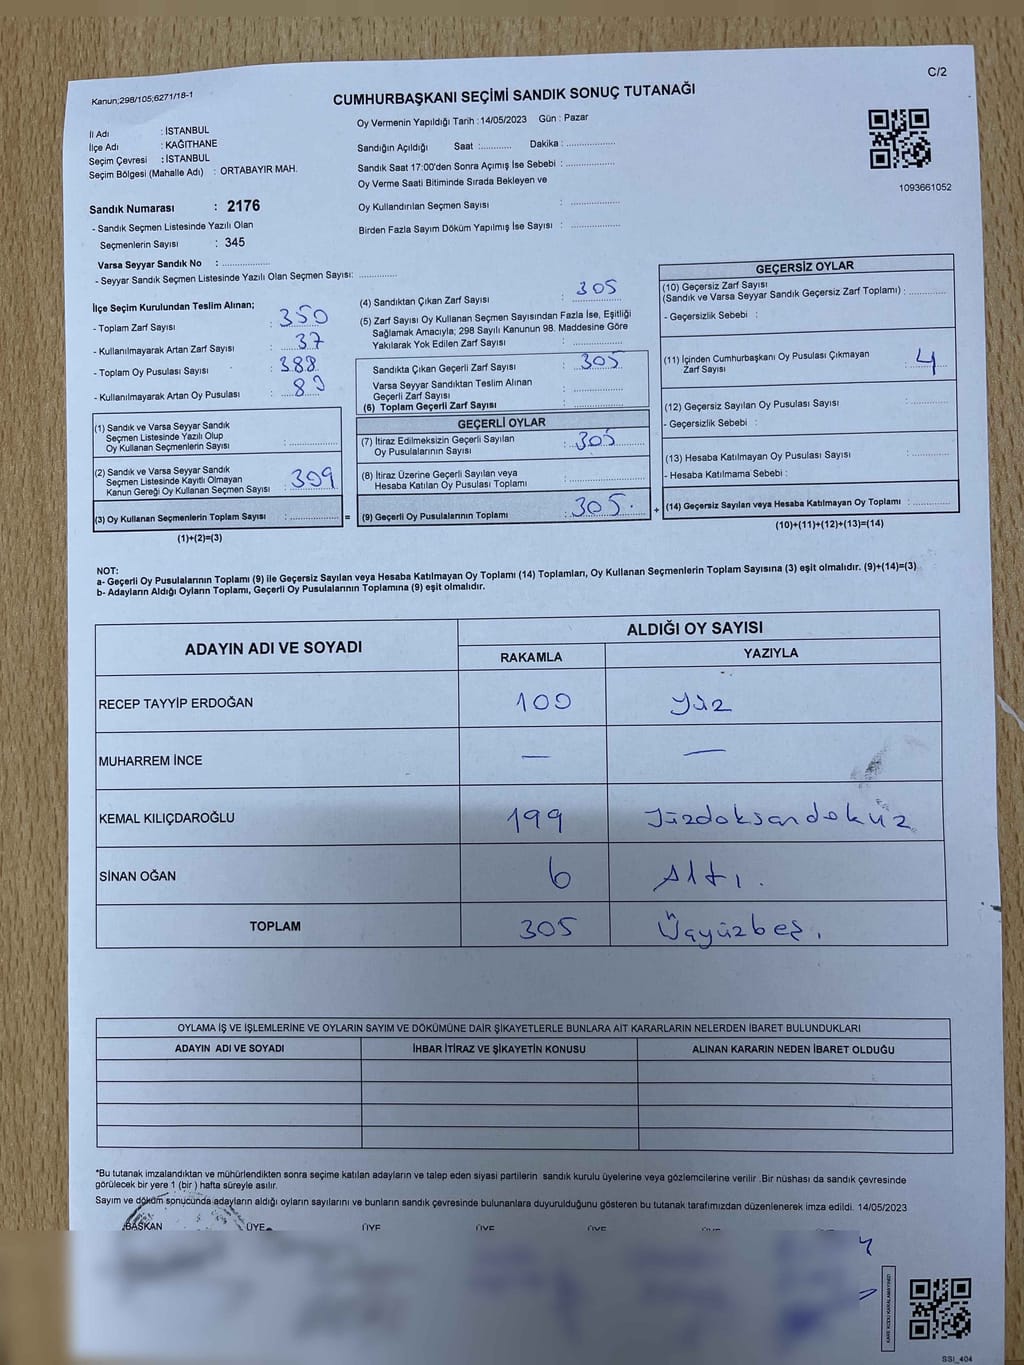 C/2
Kanun;298/105;6271/18-1
CUMHURBAŞKANI SEÇİMİ SANDIK SONUÇ TUTANAĞI
Oy Vermenin Yapıldığı Tarih : 14/05/2023 Gün : Pazar
İl Adı : İSTANBUL
İlçe Adı : KAĞITHANE
Seçim Çevresi : İSTANBUL
Seçim Bölgesi (Mahalle Adı) : ORTABAYIR MAH.
Sandık Numarası : 2176
- Sandık Seçmen Listesinde Yazılı Olan
Seçmenlerin Sayısı : 345
Varsa Seyyar Sandık No : ............
- Seyyar Sandık Seçmen Listesinde Yazılı Olan Seçmen Sayısı: ............
Sandığın Açıldığı Saat :.......... Dakika : ................
Sandık Saat 17:00'den Sonra Açımış İse Sebebi : ................
Oy Verme Saati Bitiminde Sırada Bekleyen ve
Oy Kullandırılan Seçmen Sayısı : ................
Birden Fazla Sayım Döküm Yapılmış İse Sayısı : ................
1093661052
İlçe Seçim Kurulundan Teslim Alınan;
- Toplam Zarf Sayısı : 350
- Kullanılmayarak Artan Zarf Sayısı : 37
- Toplam Oy Pusulası Sayısı : 388
- Kullanılmayarak Artan Oy Pusulası : 83
(1) Sandık ve Varsa Seyyar Sandık
Seçmen Listesinde Yazılı Olup
Oy Kullanan Seçmenlerin Sayısı : ............
(2) Sandık ve Varsa Seyyar Sandık
Seçmen Listesinde Kayıtlı Olmayan
Kanun Gereği Oy Kullanan Seçmen Sayısı : 309
(3) Oy Kullanan Seçmenlerin Toplam Sayısı : ............ =
(1)+(2)=(3)
(4) Sandıktan Çıkan Zarf Sayısı : 305
(5) Zarf Sayısı Oy Kullanan Seçmen Sayısından Fazla İse, Eşitliği
Sağlamak Amacıyla; 298 Sayılı Kanunun 98. Maddesine Göre
Yakılarak Yok Edilen Zarf Sayısı : ............
Sandıkta Çıkan Geçerli Zarf Sayısı : 305
Varsa Seyyar Sandıktan Teslim Alınan
Geçerli Zarf Sayısı : ............
(6) Toplam Geçerli Zarf Sayısı : ............
GEÇERLİ OYLAR
(7) İtiraz Edilmeksizin Geçerli Sayılan
Oy Pusulalarının Sayısı : 305
(8) İtiraz Üzerine Geçerli Sayılan veya
Hesaba Katılan Oy Pusulası Toplamı : ............
(9) Geçerli Oy Pusulalarının Toplamı : 305. +
GEÇERSİZ OYLAR
(10) Geçersiz Zarf Sayısı
(Sandık ve Varsa Seyyar Sandık Geçersiz Zarf Toplamı) : ............
- Geçersizlik Sebebi :
(11) İçinden Cumhurbaşkanı Oy Pusulası Çıkmayan
Zarf Sayısı : 4
(12) Geçersiz Sayılan Oy Pusulası Sayısı : ............
- Geçersizlik Sebebi :
(13) Hesaba Katılmayan Oy Pusulası Sayısı : ............
- Hesaba Katılmama Sebebi :
(14) Geçersiz Sayılan veya Hesaba Katılmayan Oy Toplamı : ............
(10)+(11)+(12)+(13)=(14)
NOT:
a- Geçerli Oy Pusulalarının Toplamı (9) ile Geçersiz Sayılan veya Hesaba Katılmayan Oy Toplamı (14) Toplamları, Oy Kullanan Seçmenlerin Toplam Sayısına (3) eşit olmalıdır. (9)+(14)=(3)
b- Adayların Aldığı Oyların Toplamı, Geçerli Oy Pusulalarının Toplamına (9) eşit olmalıdır.
ADAYIN ADI VE SOYADI ALDIĞI OY SAYISI
RAKAMLA YAZIYLA
RECEP TAYYİP ERDOĞAN 100 Yüz
MUHARREM İNCE — —
KEMAL KILIÇDAROĞLU 199 Yüzdoksandokuz
SİNAN OĞAN 6 Altı.
TOPLAM 305 Üçyüzbeş.
OYLAMA İŞ VE İŞLEMLERİNE VE OYLARIN SAYIM VE DÖKÜMÜNE DAİR ŞİKAYETLERLE BUNLARA AİT KARARLARIN NELERDEN İBARET BULUNDUKLARI
ADAYIN ADI VE SOYADI İHBAR İTİRAZ VE ŞİKAYETİN KONUSU ALINAN KARARIN NEDEN İBARET OLDUĞU
*Bu tutanak imzalandıktan ve mühürlendikten sonra seçime katılan adayların ve talep eden siyasi partilerin sandık kurulu üyelerine veya gözlemcilerine verilir .Bir nüshası da sandık çevresinde
görülecek bir yere 1 (bir ) hafta süreyle asılır.
Sayım ve döküm sonucunda adayların aldığı oyların sayılarını ve bunların sandık çevresinde bulunanlara duyurulduğunu gösteren bu tutanak tarafımızdan düzenlenerek imza edildi. 14/05/2023
BAŞKAN ÜYE ÜYE ÜYE ÜYE
SSI_404